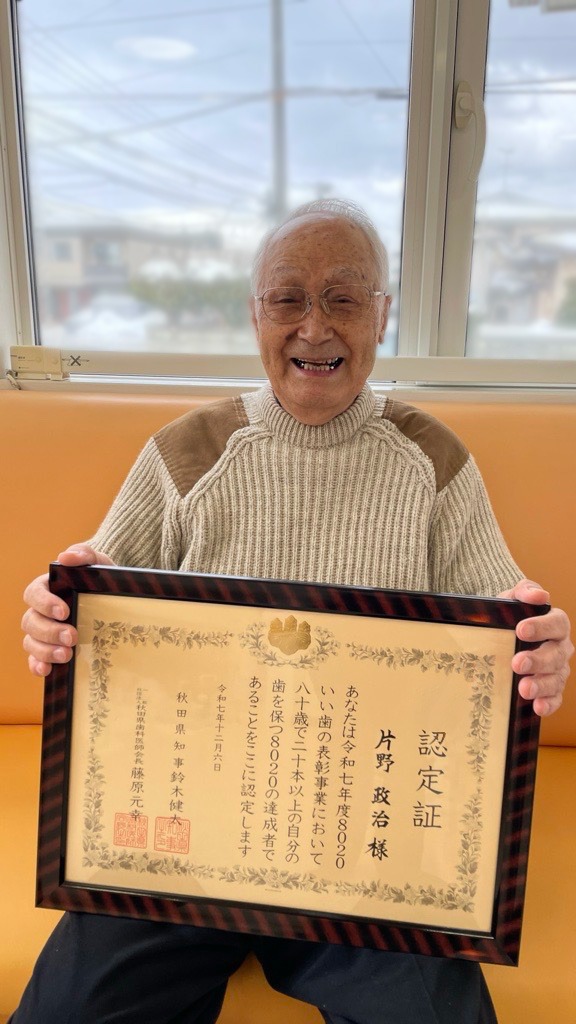 認定証
片野 政治 様
あなたは令和七年度8020
いい歯の表彰事業において
八十歳で二十本以上の自分の
歯を保つ8020の達成者で
あることをここに認定します
令和七年十二月六日
秋田県知事 鈴木健太
秋田県歯科医師会長 藤原元幸